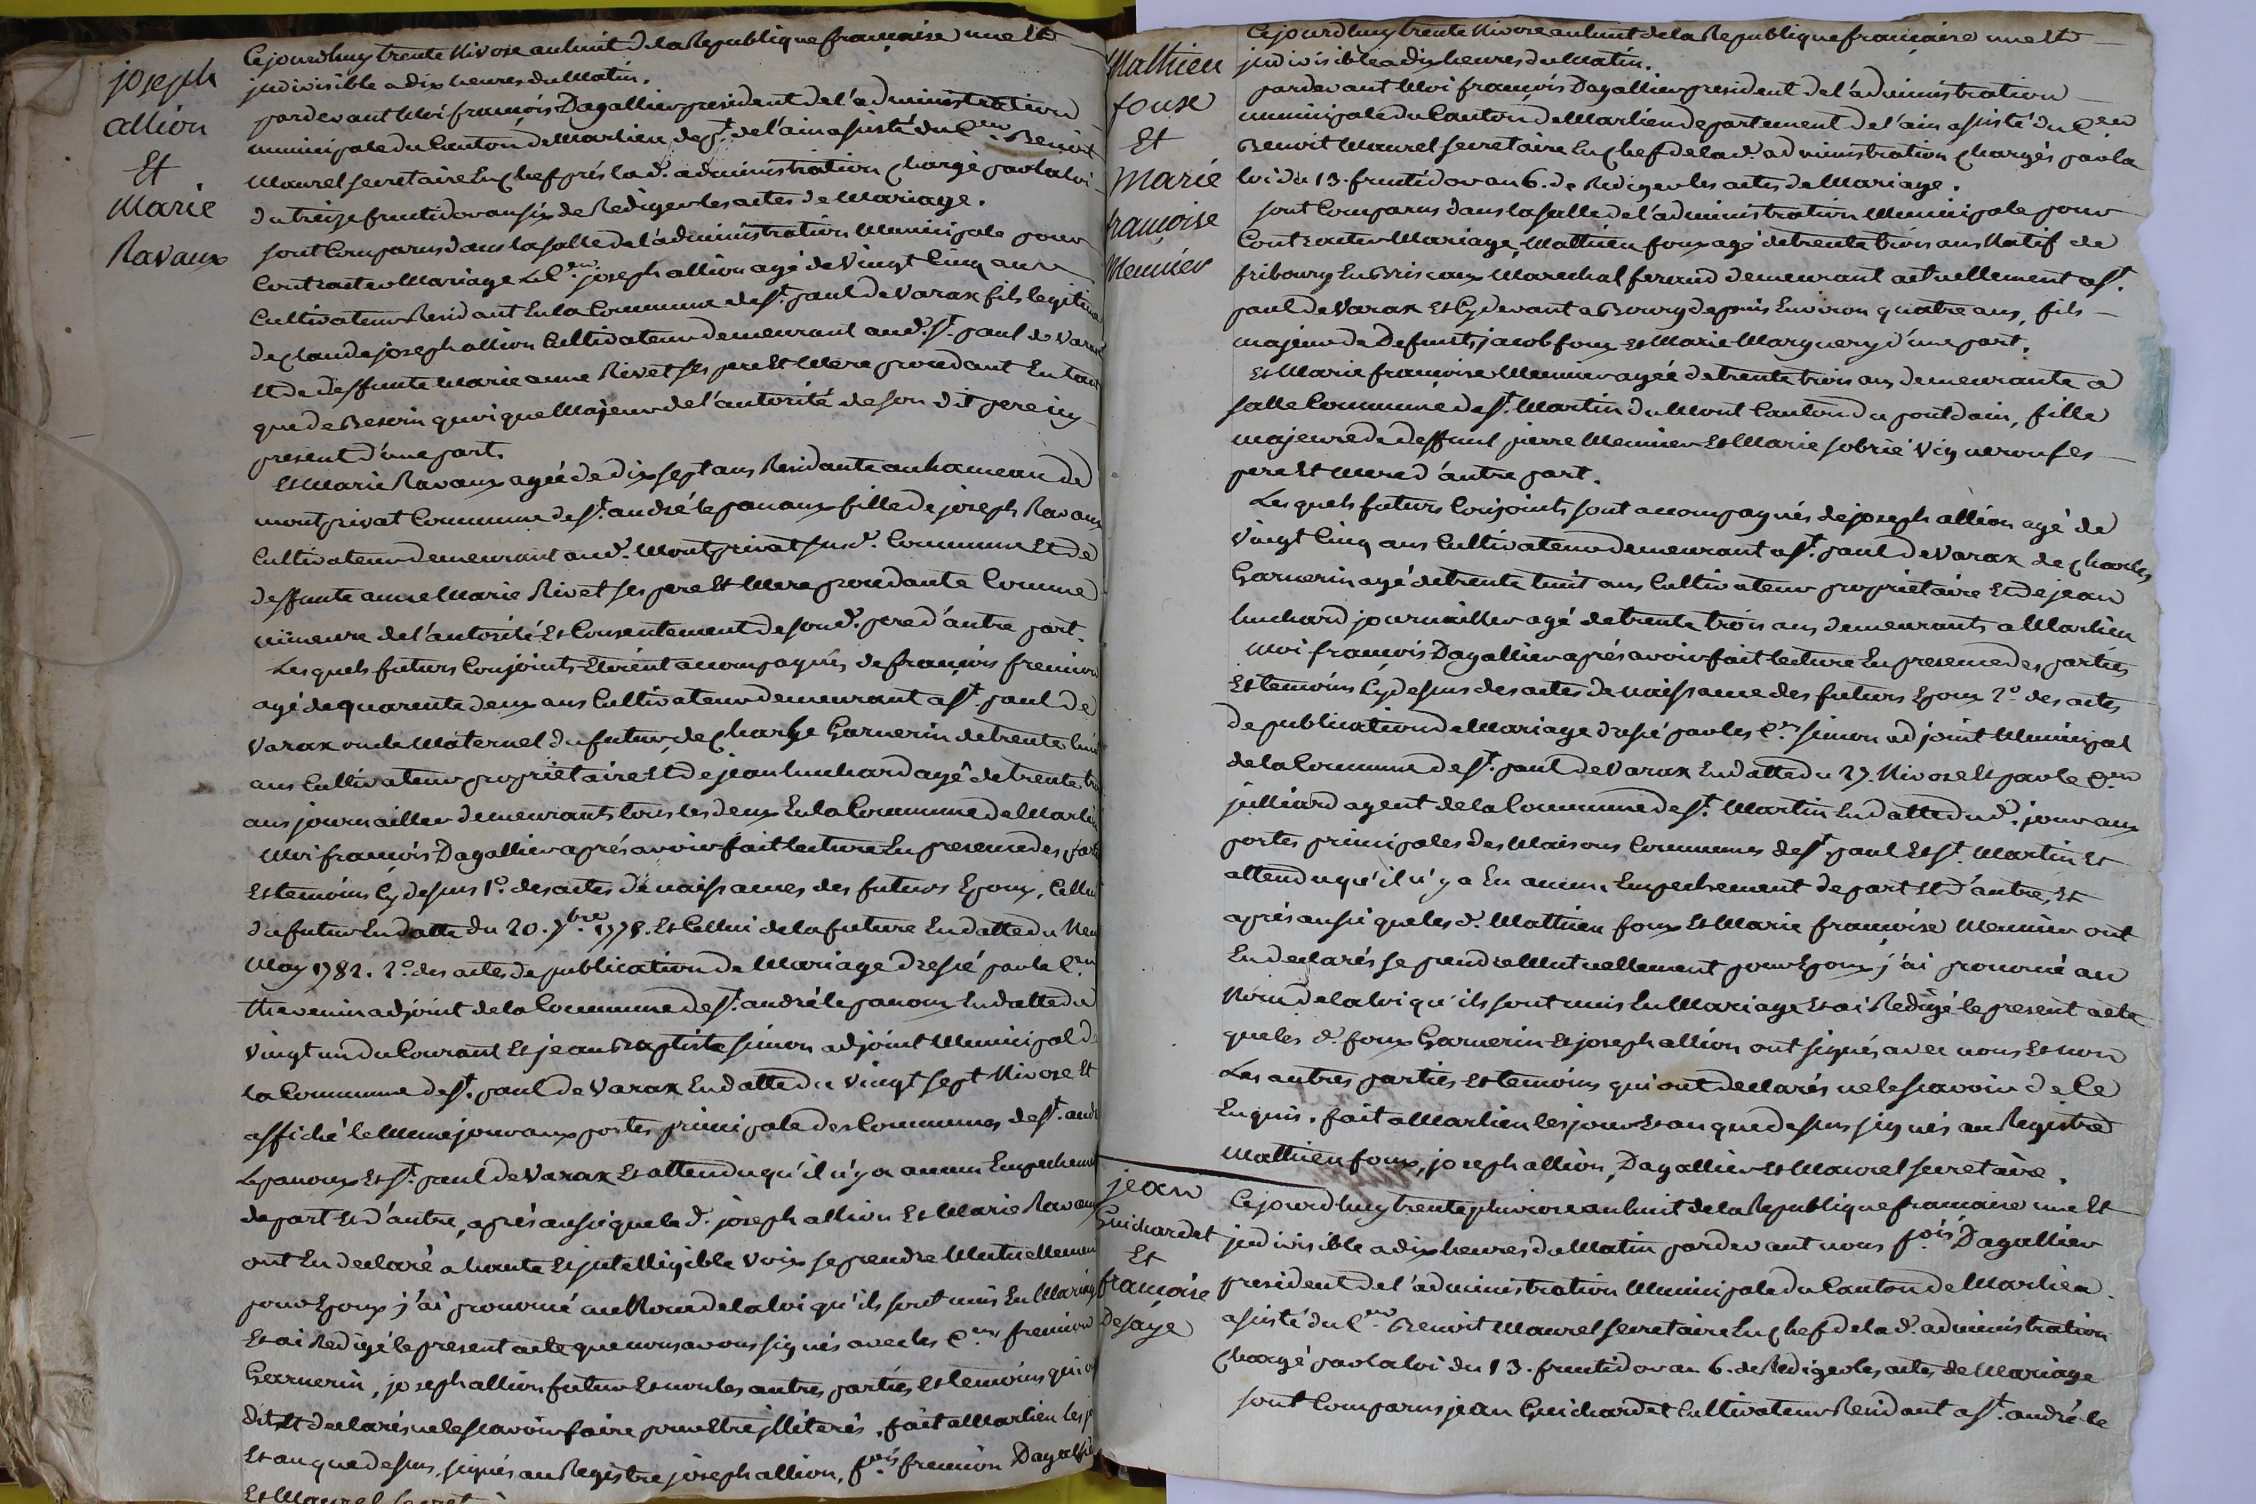 joseph
allion
Et
Marie
Ravaux
Cejourdhuy trente Nivose an huit de la Republique française une Et
jndivisible a dix heures du Matin.
pardevant Moi françois Dagallier president de l'administration
municipale du Canton de Marlieu dep.t de l'ain assisté du C.en Benoit
Maurel secretaire En chef prés lad. administration chargé par la loi
du treize fructidor an six de Rediger les actes de Mariage.
sont Comparus dans la salle de l'administration Municipale pour
Contracter Mariage Le C.en joseph allion agé de Vingt Cinq ans
Cultivateur Residant En la Commune de S.t paul de Varax fils legitime
de Claude joseph allion Cultivateur demeurant aud. S.t paul de Varax
Et de deffunte Marie anne Rivet ses pere Et Mere procedant En tant
que de Besoin quoi que Majeur de l'autorité de son dit pere icy
present d'une part.
Et Marie Ravaux agée de dix sept ans Residante au hameau de
montprivat Commune de S.t andré le panoux fille de joseph Ravaux
Cultivateur demeurant aud. Montprivat susd. Commune Et de
deffunte anne Marie Rivet ses pere Et Mere procedante Comme
mineure de l'autorité Et Consentement de son d. pere d'autre part.
Les quels futurs Conjoints Etoient acompagnés de françois fremion
agé de quarente deux ans Cultivateur demeurant a S.t paul de
Varax oncle Maternel du futur, de charle Garnerin de trente huit
ans Cultivateur proprietaire Et de jean huchard agé de trente
ans journaillier demeurants tous les deux En la Commune de Marlieu
Moi françois Dagallier aprés avoir fait lecture En presence des
Et temoins Cy dessus 1.o des actes de naissances des futurs Epoux, Cellui
du futur En datte du 20. 7.bre 1775. Et Cellui de la future En datte du
May 1782. 2.o des actes de publication de Mariage dressé par le C.en
thevenin adjoint de la Commune de S.t andré le panoux En datte du
Vingt un du Courant Et jean Baptiste simon adjoint Municipal de
la Commune de S.t paul de Varax En datte du Vingt sept Nivose Et
affiché le Meme jour aux portes principale des Communes de S.t
Le panoux Et S.t paul de Varax Et attendu qu'il n'y a aucun Empechement
de part Et d'autre, aprés aussi que led. joseph allion Et Marie Ravaux
ont En declaré a haute Et jntelligible Voix se prendre Mutuellement
pour Epoux j'ai prononcé au Nom de la loi qu'ils sont unis En Mariage
Et ai Redigé le present acte que nous avons signés avec les C.ens fremion
Garnerin, joseph allion futur Et non les autres parties Et temoins qui
dit Et declarés ne le scavoir faire pour Etre jlliterés. fait a Marlieu les
Et an que dessus, signés au Registre joseph allion, f.ois fremion Dagallier
Et Maurel
Mathieu
fouxe
Et
Marie
françoise
Meunier
Cejourdhuy trente Nivose an huit de la Republique française une Et
jndivisible a dix heures du Matin.
pardevant Moi françois Dagallier president de l'administration
municipale du Canton de Marlieu departement de l'ain assisté du C.en
Benoit Maurel secretaire En chef de lad. administration chargés par la
loi du 13. fructidor an 6. de Rediger les actes de Mariage.
sont Comparus dans la salle de l'administration Municipale pour
Contracter Mariage, Mathieu foux agé de trente trois ans Natif de
fribourg En Briscaux Marechal ferand demeurant actuellement a S.t
paul de Varax Et Cy devant a Bourg depuis Environ quatre ans, fils
majeur de Defunts jacob foux Et Marie Marguery d'une part.
Et Marie françoise Meunier agée de trente trois ans demeurante a
salle Commune de S.t Martin du Mont Canton du pontdain, fille
majeure de deffunt pierre Meunier Et Marie sobrie Vigneron ses
pere Et Mere d'autre part.
Les quels futurs Conjoints sont acompagnés de joseph allion agé de
Vingt Cinq ans Cultivateur demeurant a S.t paul de Varax de charles
Garnerin agé de trente huit ans Cultivateur proprietaire Et de jean
huchard journaillier agé de trente trois ans demeurants a Marlieu
Moi françois Dagallier aprés avoir fait lecture En presence des parties
Et temoins Cy dessus des actes de naissance des futurs Epoux 2.o des actes
de publication de Mariage dressé par les C.en simon adjoint Municipal
de la Commune de S.t paul de Varax En datte du 27. Nivose Et par le C.en
julliard agent de la Commune de S.t Martin En datte dud. jour aux
portes principales des Maisons Communes de S.t paul Et S.t Martin Et
attendu qu'il n'y a Eu aucun Empechement de part Et d'autre, Et
aprés aussi que les d. Mathieu foux Et Marie françoise Meunier ont
En declarés se prendre Mutuellement pour Epoux j'ai prononcé au
Nom de la loi qu'ils sont unis En Mariage Et ai Redigé le present acte
que les d. foux Garnerin Et joseph allion ont signés avec nous Et non
Les autres parties Et temoins qui ont declarés ne le scavoir de Ce
Enquis. fait a Marlieu les jour Et an que dessus signés au Registre
Mathieu foux, joseph allion, Dagallier Et Maurel secretaire.
jean
Guichardet
Et
françoise
Desaye
Cejourdhuy trente pluviose an huit de la Republique francaise une Et
jndivisible a dix heures du Matin pardevant nous f.ois Dagallier
president de l'administration Municipale du Canton de Marlieu.
assisté du C.en Benoit Maurel secretaire En chef de lad. administration
chargé par la loi du 13. fructidor an 6. de Rediger les actes de Mariage
sont Comparus jean Guichardet Cultivateur Residant a S.t andré le